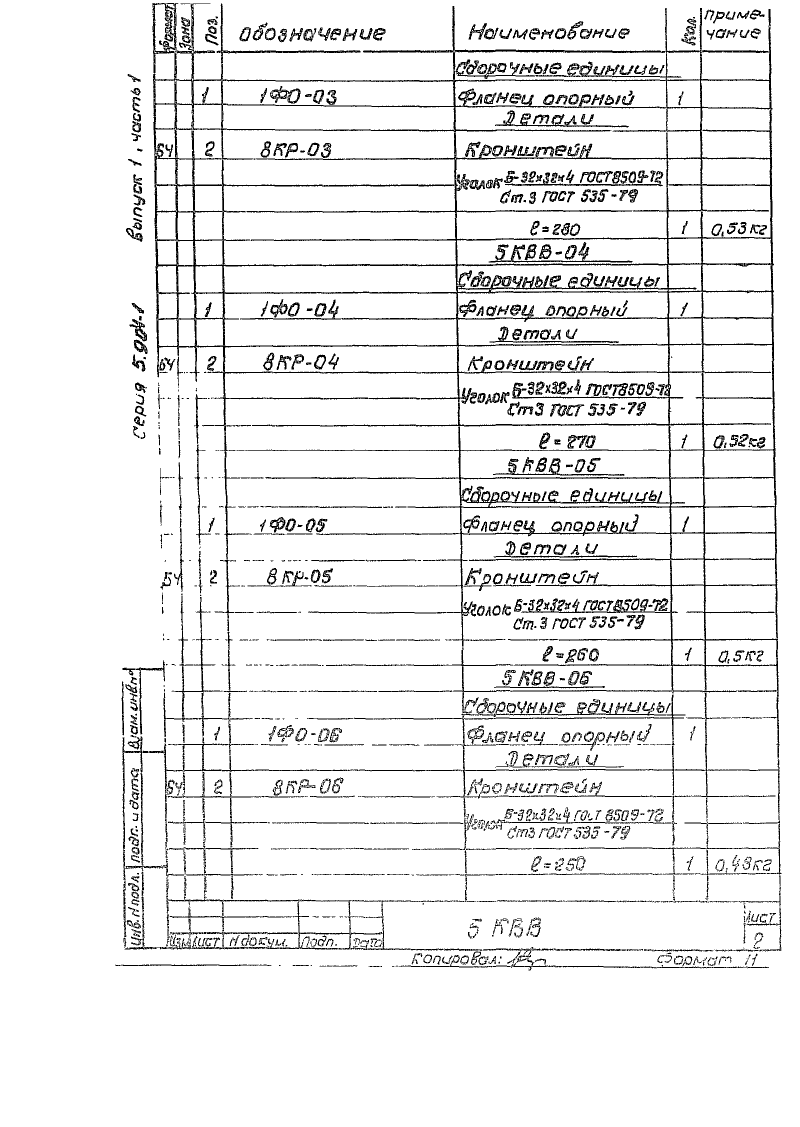 Серия 5.904-1 Выпуск 1, часть 1
Формат Зона Поз. Обозначение Наименование Кол. Приме-
чание
Сборочные единицы
1 1ФО-03 Фланец опорный 1
Детали
БЧ 2 8КР-03 Кронштейн
Уголок Б-32х32х4 ГОСТ8509-72
Ст.3 ГОСТ 535-79
ℓ=280 1 0,53кг
5КВВ-04
Сборочные единицы
1 1ФО-04 Фланец опорный 1
Детали
БЧ 2 8КР-04 Кронштейн
Уголок Б-32х32х4 ГОСТ8509-72
Ст3 ГОСТ 535-79
ℓ=270 1 0,52кг
5КВВ-05
Сборочные единицы
1 1ФО-05 Фланец опорный 1
Детали
БЧ 2 8КР-05 Кронштейн
Уголок Б-32х32х4 ГОСТ8509-72
Ст.3 ГОСТ 535-79
ℓ=260 1 0,5кг
5КВВ-06
Сборочные единицы
1 1ФО-06 Фланец опорный 1
Детали
БЧ 2 8КР-06 Кронштейн
Уголок Б-32х32х4 ГОСТ 8509-72
Ст3 ГОСТ 535-79
ℓ=250 1 0,48кг
Инв.№подл. Подп. и дата Взам.инв.№
Изм Лист № докум. Подп. Дата
5 КВВ
Лист
2
Копировал:
Формат 11